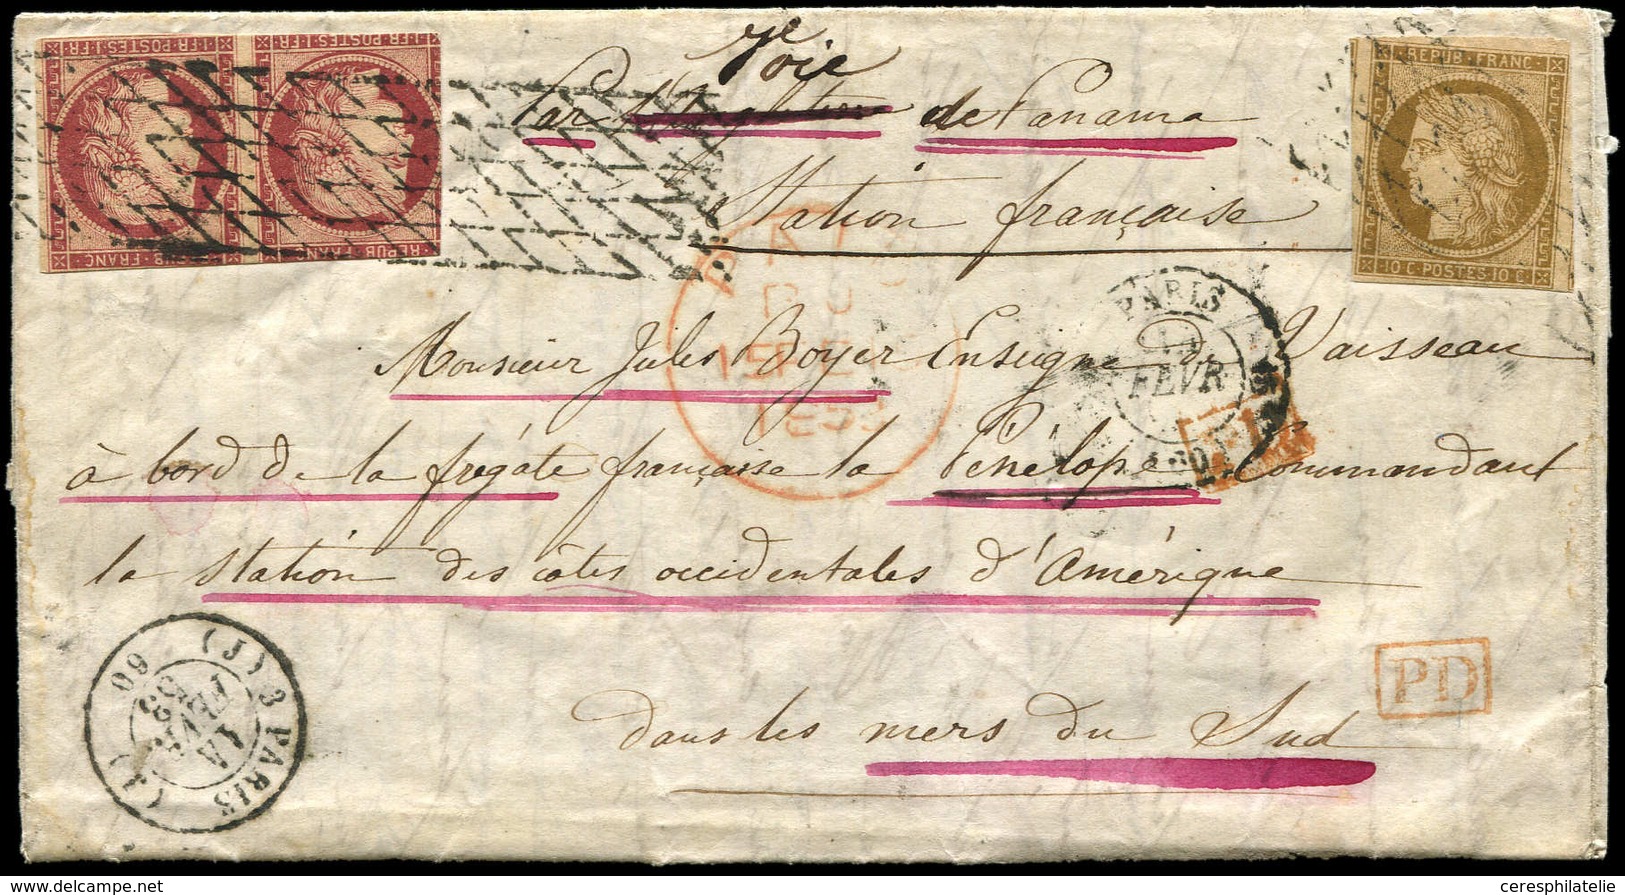 1 FR·POSTES·1 FR· 1 FR·POSTES·1 FR·
REPUB FRANC· REPUB FRANC·
REPUB·FRANC·
10 C·POSTES·10 C·
Voie
Par de Panama
Station française
PAID
15 FE
1853
PARIS
FEVR
(60)
Monsieur Jules Boyer Enseigne de Vaisseau
à bord de la frégate française la Pénélope Commandant
la station des côtes occidentales d'Amérique
dans les mers du Sud
PD
(J) 3 PARIS (J)
1A
FEVR
53
60
www.delcampe.net
ceresphilatelie